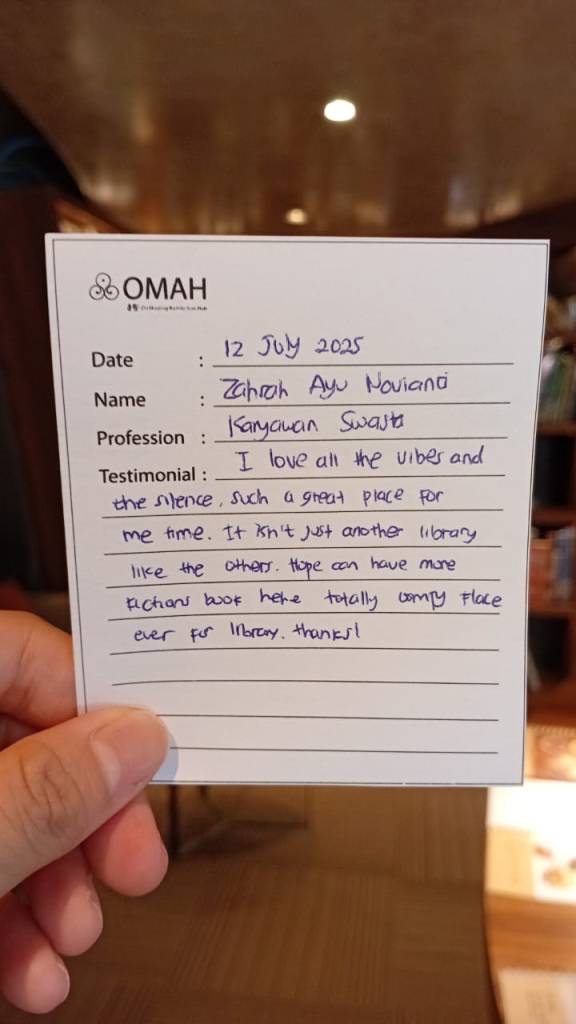 OMAH
Date : 12 July 2025
Name : Zahrah Ayu Novianti
Profession : Karyawan Swasta
Testimonial : I love all the vibes and
the silence, such a great place for
me time. It isn't just another library
like the others. Hope can have more
fictions book here totally comfy place
ever for library. thanks!